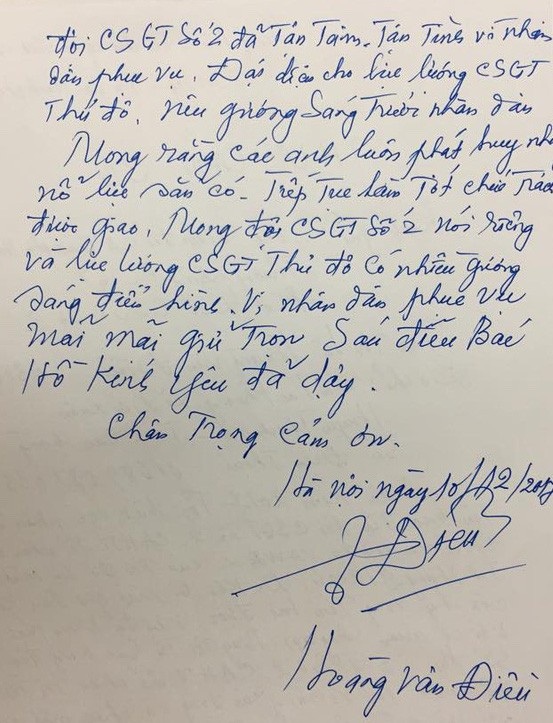 đội CSGT Số 2 đã Tận Tâm. Tận Tình vì nhân
dân phục vụ. Đại diện cho lực lượng CSGT
Thủ đô, nêu gương Sáng Trước nhân dân
Mong rằng các anh luôn phát huy
nỗ lực sẵn có. Tiếp Tục làm Tốt chức Trách
được giao, Mong đội CSGT Số 2 nói riêng
và lực lượng CSGT Thủ đô có nhiều gương
sáng điển hình. Vì nhân dân phục vụ
mãi mãi giữ Trọn Sáu điều Bác
Hồ Kính yêu đã dạy.
Chân Trọng Cảm ơn.
Hà nội ngày 10/12/
Điều
Hoàng Văn Điều